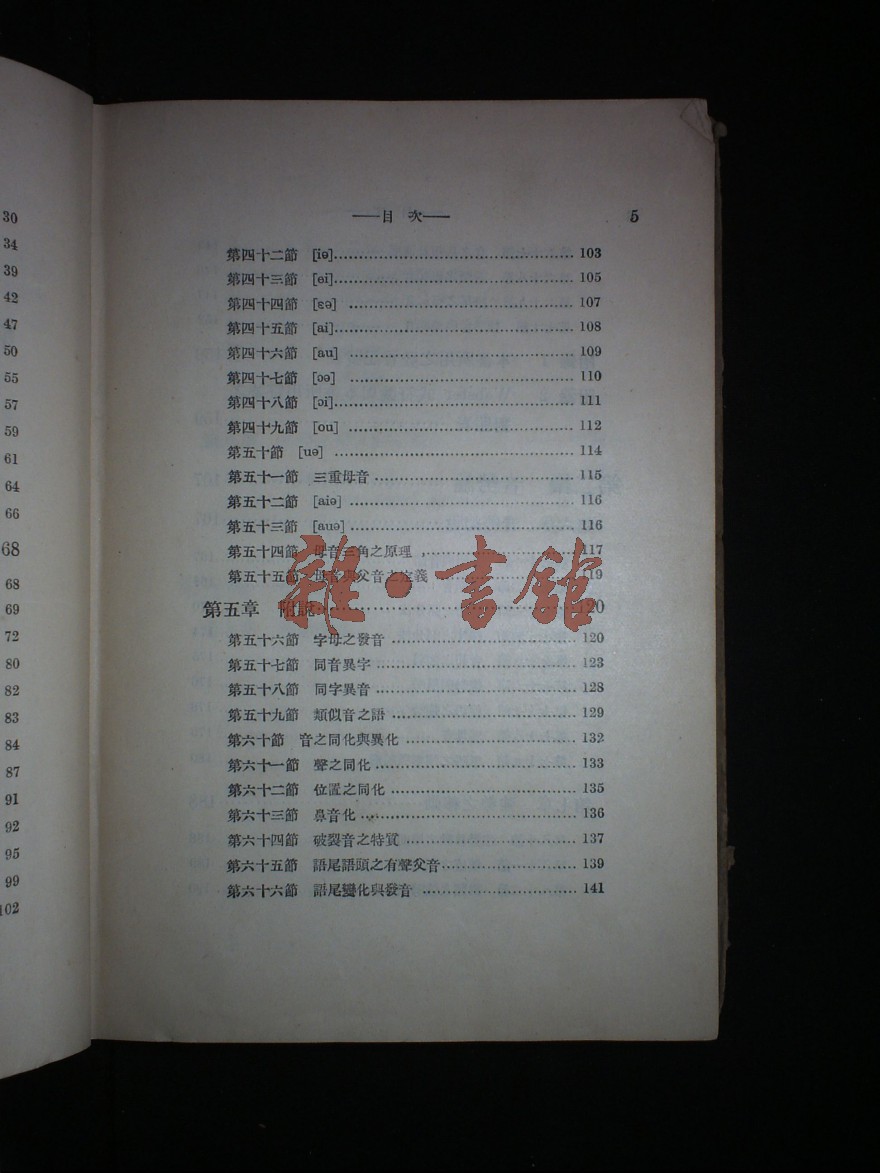 30
34
39
42
47
50
55
57
59
61
64
66
68
68
69
72
80
82
83
84
87
91
92
95
99
102
——目 次—— 5
第四十二節 [iə]........................ 103
第四十三節 [ei]........................ 105
第四十四節 [ɛə] ........................ 107
第四十五節 [ai]........................ 108
第四十六節 [au] ........................ 109
第四十七節 [ɔə] ........................ 110
第四十八節 [ɔi]........................ 111
第四十九節 [ou] ........................ 112
第五十節 [uə] ........................ 114
第五十一節 三重母音 ........................ 115
第五十二節 [aiə] ........................ 116
第五十三節 [auə] ........................ 116
第五十四節 母音三角之原理 ........................ 117
第五十五節 母音與父音之定義 ........................ 119
雜·書館
第五章 附說 ........................ 120
第五十六節 字母之發音 ........................ 120
第五十七節 同音異字 ........................ 123
第五十八節 同字異音 ........................ 128
第五十九節 類似音之語 ........................ 129
第六十節 音之同化與異化 ........................ 132
第六十一節 聲之同化 ........................ 133
第六十二節 位置之同化 ........................ 135
第六十三節 鼻音化 ........................ 136
第六十四節 破裂音之特質 ........................ 137
第六十五節 語尾語頭之有聲父音........................ 139
第六十六節 語尾變化與發音 ........................ 141